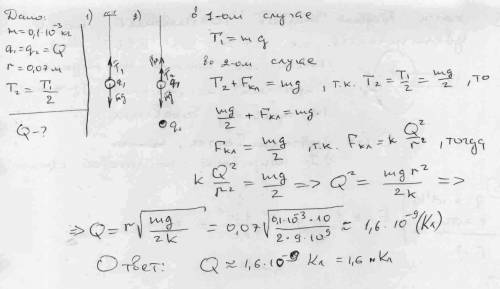 Дано:
m = 0,1·10⁻³ кг
q₁ = q₂ = Q
r = 0,07 м
T₂ = T₁/2
Q - ?
1)
2)
T₁
q₁
Fg
Fкл
T₂
q₁
Fg
q₂
в 1-ом случае
T₁ = mg
во 2-ом случае
T₂ + Fкл = mg , т.к. T₂ = T₁/2 = mg/2 , то
mg/2 + Fкл = mg.
Fкл = mg/2 , т.к. Fкл = k Q²/r² , тогда
k Q²/r² = mg/2 => Q² = mgr²/2k =>
=> Q = r √(mg/2k) = 0,07 √(0,1·10⁻³·10/2·9·10⁹) ≈ 1,6·10⁻⁹ (Кл)
Ответ: Q ≈ 1,6·10⁻⁹ Кл = 1,6 нКл